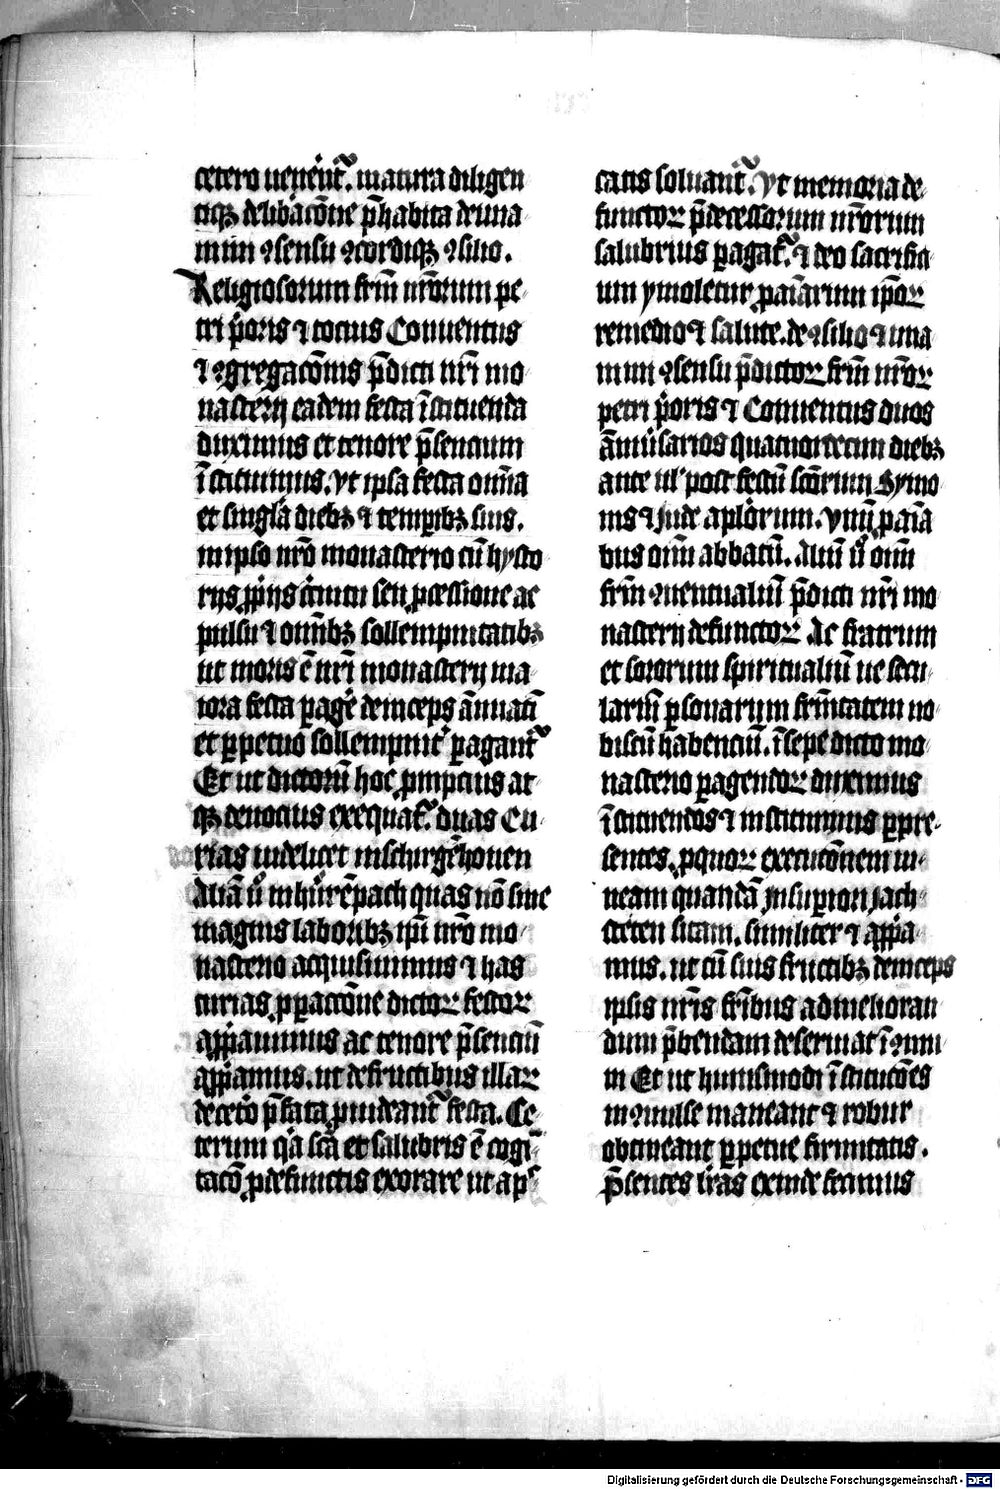 cetero uenerint̃. matura diligen
tiq́ꝫ delib̃acõne p̃habita de una
nimi ꝯsensu ꝯcordiq́ꝫ ꝯsilio.
Religiosorum frm̃ nr̃orum pe
tri p̃oris ⁊ tocius Conuentus
⁊ ꝯgregacõnis p̃dicti nr̃i mo
nasterij eadem festa ĩstituenda
duximus et tenore p̃sencium
ĩstituimus. vt ipsa festa om̃ia
et singl̃a diebꝫ ⁊ temp̃ibꝫ suis.
in ipso nr̃o monasterio cũ hysto
rijs ꝓprijs cantu seu ꝓcessione ac
pulsu ⁊ om̃ibꝫ sollempnitatibꝫ
ut moris ẽ nr̃i monasterij ma
iora festa ꝑagẽ deinceps ãnuati
et ꝑpetuo sollempnit̃ ꝑagant̃
Et ut dictorũ hoc ꝓmpcius at
qꝫ deuocius exequat̃. duas Cu
rias uidelicet in schurgẽhouen
Aliã ũ in hũrẽpach quas nõ sine
magnis laboribꝫ ip̃i nr̃o mo
nasterio acquisiuimus ⁊ has
curias ꝓ ꝑaccõne dictoꝝ festoꝝ
app̃auimus ac tenore p̃senciũ
app̃amus. ut de fructibus illaꝝ
de cet̃o p̃fata ꝓuideant̃ festa. Ce
terum q̃a sc̃a et salubris ẽ cogi
tacõ ꝓ defunctis exorare ut a pc̃
catis soluant̃. Vt memoria de
functoꝝ p̃decessorum nr̃orum
salubrius ꝑagat̃. ⁊ deo sacrifici
um ymoletur ꝓ paĩarum ip̃oꝝ
remedio ⁊ salute. de ꝯsilio ⁊ una
nimi ꝯsensu p̃dictoꝝ frm̃ nr̃oꝝ
petri p̃oris ⁊ Conuentus duos
ãniũsarios quatuordecim diebꝫ
ante ul̃ post festũ sc̃orum Symo
nis ⁊ Jude ap̃lorum. vnũ ꝓ paĩa
bus oĩm abbatũ. Aliũ ũ oĩm
frm̃ ꝯuentualiũ p̃dicti nr̃i mo
nasterij defunctoꝝ Ac fratrum
et sororum spiritualiũ ue secu
lariũ ꝑsonarum fr̃nitatem no
biscũ habenciũ. ĩ sepe dicto mo
nasterio ꝑagendoꝝ duximus
ĩstituendos ⁊ instituimus ꝑ p̃re
sentes. ꝓ quoꝝ execucõnem ui
neam quandã in suꝑiori Jach
steten sitam. similiter ⁊ app̃a
mus. ut cũ suis fructibꝫ deinceps
ipsis nr̃is fr̃ibus ad melioran
dum p̃bendam deseruiat ĩ ꝯuiui
m Et ut huiusmodi ĩstitucões
in ꝯuulse maneant ⁊ robur
obtineant ꝑpetue firmitatis.
p̃sentes lr̃as exinde fecimus
Digitalisierung gefördert durch die Deutsche Forschungsgemeinschaft - DFG